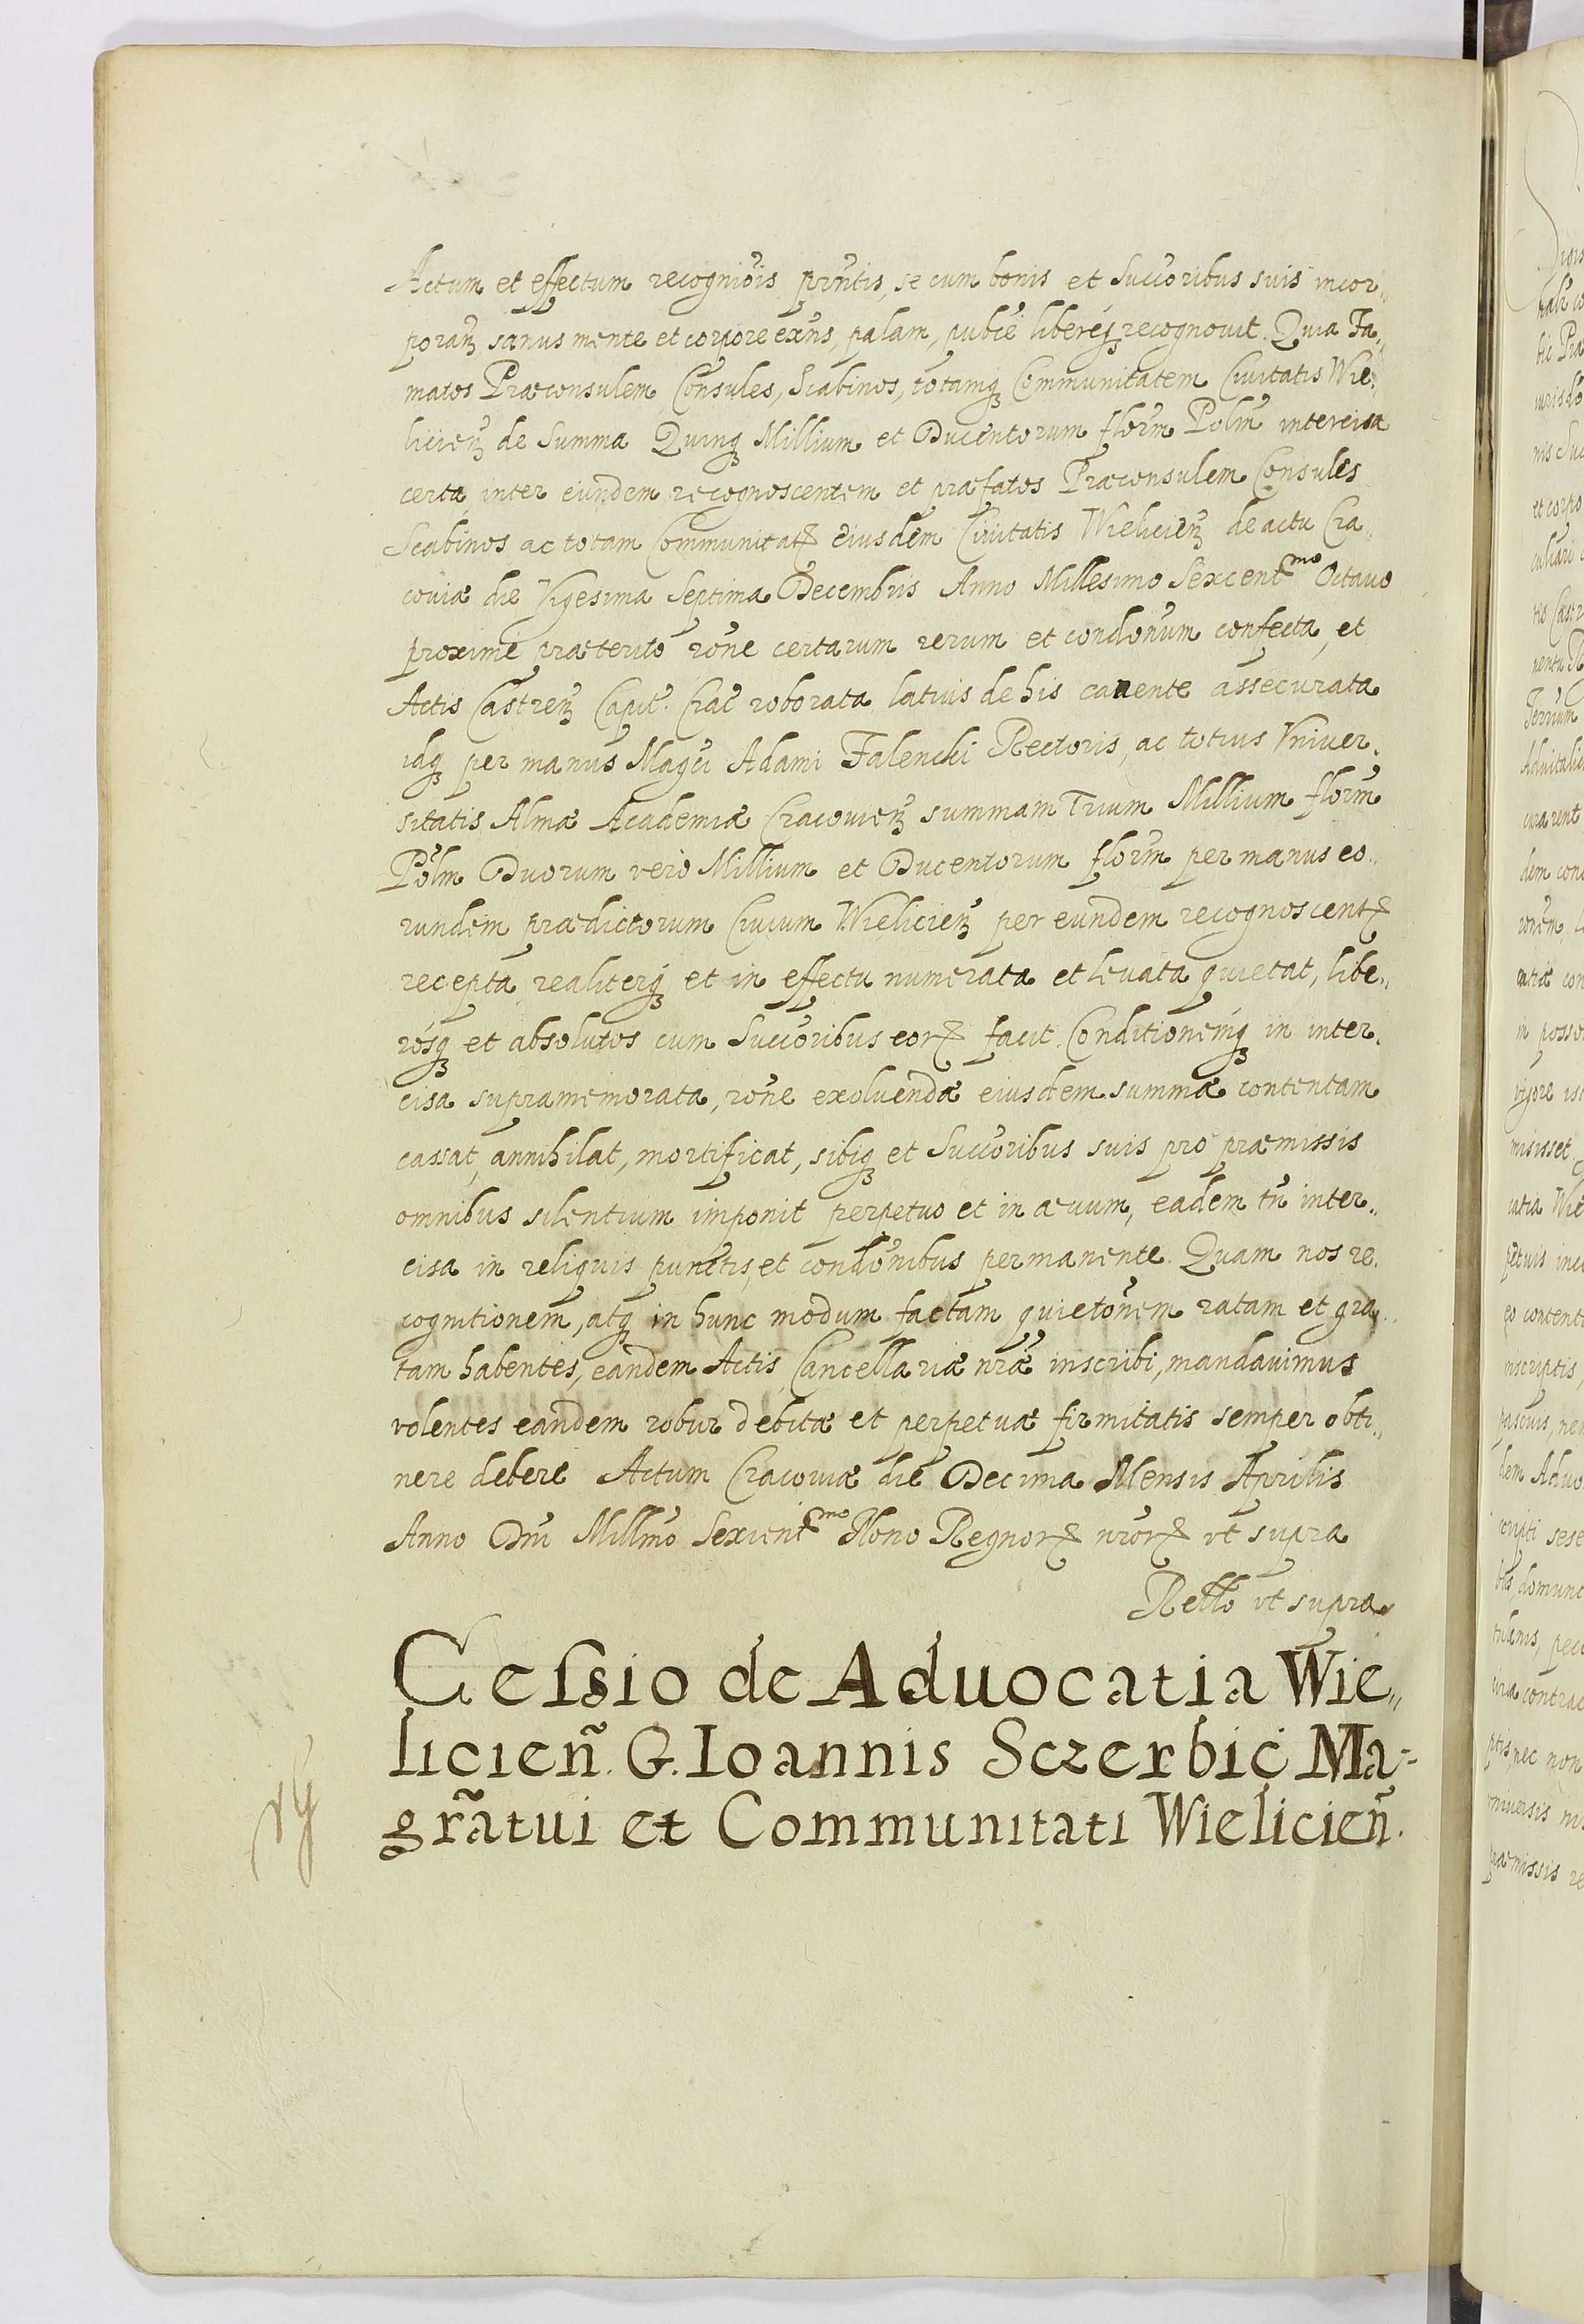 Actum et effectum recognio͠is pr͠ntis, se cum bonis et Succ͠oribus suis incor„
poran͠, sanus mente et corpore exn͠s, palam, publ͠e liberéq; recognouit. Quia Fa„
matos Præconsulem Consules, Scabinos, totamq; Communitatem Ciuitatis Wie„
licien͠ de Summa Quinq; Millium et Ducentorum flor͠m Pol͠m intercisa
certa inter eundem recognoscentem et præfatos Præconsulem Consules
Scabinos ac totam Communitatꝫ eiusdem Ciuitatis Wielicien͠ de actu Cra„
couiæ die Vigesima Septima Decembris Anno Millesimo Sexcent^mo Octauo
proximè præterito ro͠ne certarum rerum et condon͠um confecta, et
Actis Castren͠ Capit͠. Crac͠ roborata latius de his canente assecurata
idq; per manus Magc͠i Adami Falencki Rectoris, ac totius Vniuer„
sitatis Almæ Academiæ Cracouien͠ summam Trium Millium flor͠m
Pol͠m Duorum verò Millium et Ducentorum flor͠m per manus eo„
rundem prædictorum Ciuium Wielicien͠ per eundem recognoscentꝫ
recepta realiterq; et in effectu numerata et leuata quietat, libe„
rósq; et absolutos cum Succ͠oribus eorꝫ facit. Conditionémq; in inter„
cisa supramemorata, ro͠ne exoluendæ eiusdem summæ contentam
cassat, annihilat, mortificat, sibiq; et Succ͠oribus suis pro præmissis
omnibus silentium imponit perpetuo et in æuum, eadem tn͠ inter„
cisa in reliquis punctis, et condon͠ibus permanente. Quam nos re„
cognitionem, atq; in hunc modum factam quieto͠nem ratam et gra„
tam habentes, eandem Actis Cancellariæ nr͠æ inscribi, mandauimus
volentes eandem robur debitæ et perpetuæ firmitatis semper obti„
nere debere Actum Cracouiæ die Decima Mensis Aprilis
Anno Dn͠i Millm͠o Sexcent^mo Nono Regnorꝫ nr͠orꝫ vt supra
Rel͠lo vt supra
Cessio de Aduocatia Wie„
licien͠. G. Ioannis Sczerbic͠ Ma-
gr͠atui et Communitati Wielicien͠.